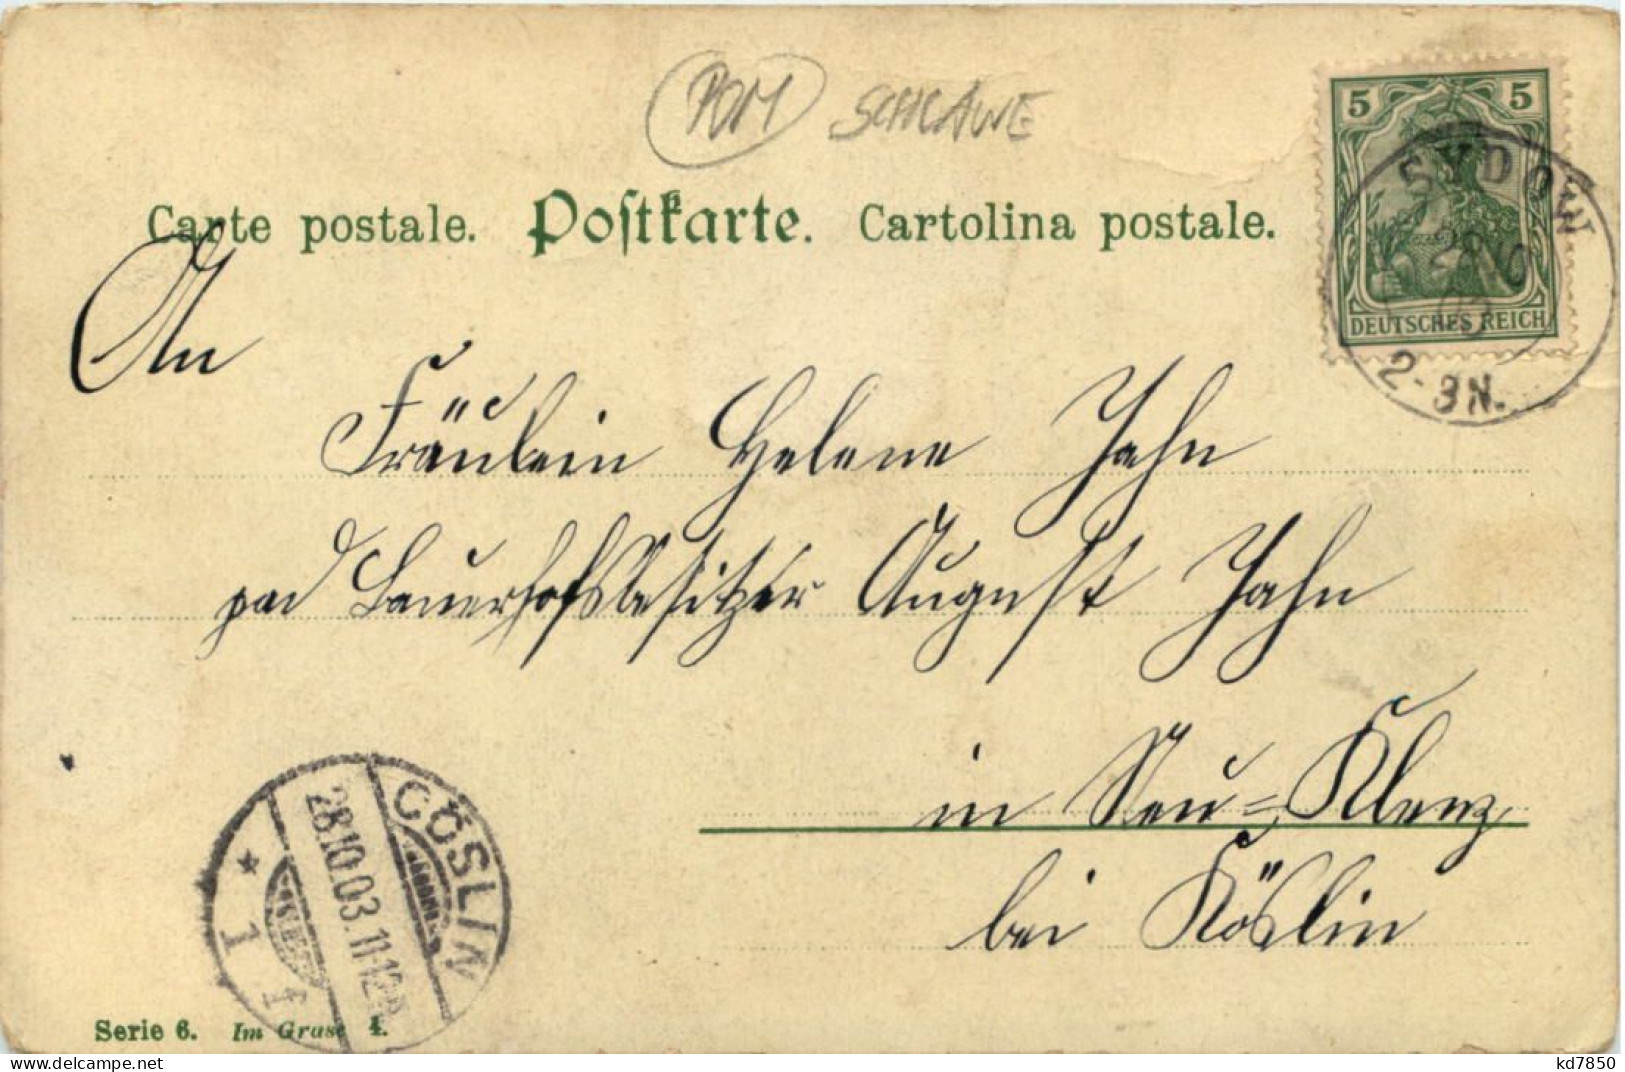 POM SCHLAWE
Carte postale. Postkarte. Cartolina postale.
5 5
DEUTSCHES REICH
SYDOW
28 10
2-3N.
An
Fräulein Helene Jahn
pad Bauerhofsbesitzer August Jahn
in Neu-Klenz
bei Köslin
CÖSLIN
28.10.03.11-12
* 1 f
Serie 6. Im Grase 4.
kd7850